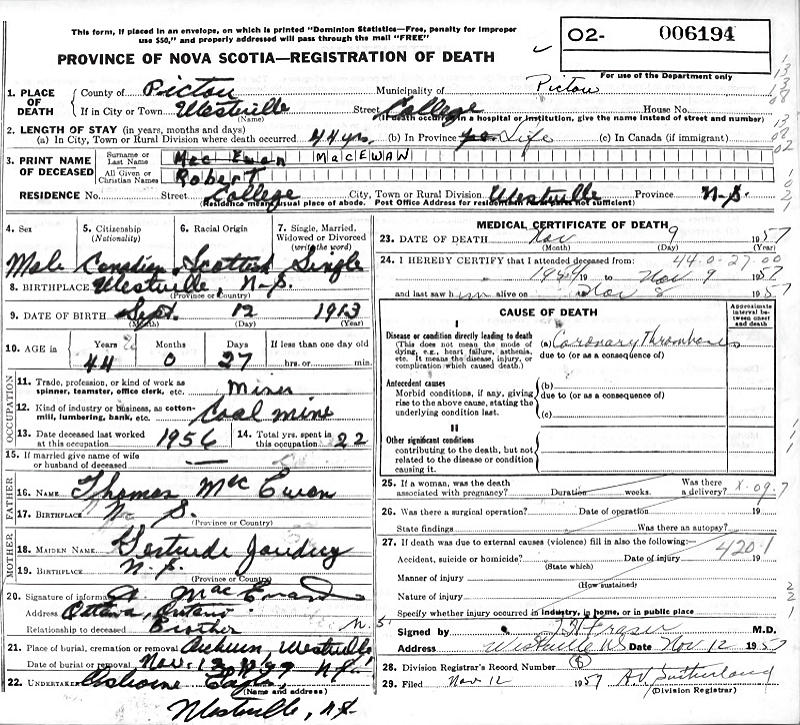 This form, if placed in an envelope, on which is printed "Dominion Statistics—Free, penalty for improper
use $50," and properly addressed will pass through the mail "FREE"
PROVINCE OF NOVA SCOTIA—REGISTRATION OF DEATH
02- 006194
For use of the Department only
1. PLACE OF DEATH County of Pictou Municipality of Pictou
If in City or Town Westville Street College House No.
(Name) (If death occurred in a hospital or institution, give the name instead of street and number)
2. LENGTH OF STAY (in years, months and days)
(a) In City, Town or Rural Division where death occurred 44 yrs. (b) In Province Life (c) In Canada (if immigrant)
3. PRINT NAME OF DECEASED Surname or Last Name Mac Ewan MacEWAN
All Given or Christian Names Robert
RESIDENCE No. Street College City, Town or Rural Division Westville Province N.S.
(Residence means usual place of abode. Post Office Address for residents of rural parts not sufficient)
4. Sex 5. Citizenship (Nationality) 6. Racial Origin 7. Single, Married, Widowed or Divorced (write the word)
Male Canadian Scottish Single
8. BIRTHPLACE Westville, N.S.
(Province or Country)
9. DATE OF BIRTH Sept. 12 1913
(Month) (Day) (Year)
10. AGE in Years Months Days If less than one day old
44 0 27 hrs. or min.
OCCUPATION
11. Trade, profession, or kind of work as spinner, teamster, office clerk, etc. Miner
12. Kind of industry or business, as cotton-mill, lumbering, bank, etc. Coal mine
13. Date deceased last worked at this occupation 1956 14. Total yrs. spent in this occupation 22
15. If married give name of wife or husband of deceased —
FATHER
16. NAME Thomas Mac Ewan
17. BIRTHPLACE N. S.
(Province or Country)
MOTHER
18. MAIDEN NAME Gertrude
19. BIRTHPLACE N.S.
(Province or Country)
20. Signature of informant Mac Ewan
Address Ottawa, Ontario
Relationship to deceased Brother
21. Place of burial, cremation or removal Auburn, Westville
Date of burial or removal Nov. 12 N.S.
22. UNDERTAKER
(Name and address)
Westville, N.S.
MEDICAL CERTIFICATE OF DEATH
23. DATE OF DEATH Nov 9 1957
(Month) (Day) (Year)
24. I HEREBY CERTIFY that I attended deceased from: 44.0-27.00
19 to Nov 9 1957
and last saw him alive on Nov 8 1957
CAUSE OF DEATH
Approximate interval between onset and death
I
Disease or condition directly leading to death (a) Coronary Thrombosis
(This does not mean the mode of dying, e.g., heart failure, asthenia, etc. It means the disease, injury, or complication which caused death.)
due to (or as a consequence of)
Antecedent causes (b)
Morbid conditions, if any, giving rise to the above cause, stating the underlying condition last.
due to (or as a consequence of)
(c)
II
Other significant conditions
contributing to the death, but not related to the disease or condition causing it.
25. If a woman, was the death associated with pregnancy? Duration weeks. Was there a delivery? X-09.7
26. Was there a surgical operation? Date of operation 19
State findings Was there an autopsy?
27. If death was due to external causes (violence) fill in also the following:—
420.1
Accident, suicide or homicide? Date of injury 19
(State which)
Manner of injury
(How sustained)
Nature of injury
Specify whether injury occurred in industry, in home, or in public place
Signed by Fraser M.D.
Address Westville NS Date Nov 12 1957
28. Division Registrar's Record Number
29. Filed Nov 12 1957 A.V. Sutherland
(Division Registrar)